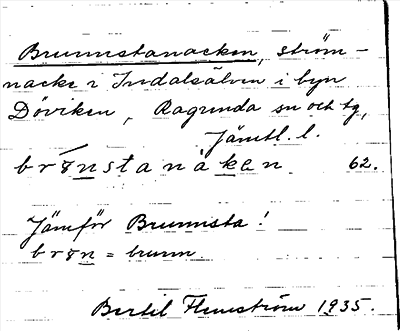 Brunnstanacken, ström-
nacke i Indalsälven i byn
Döviken, Ragunda sn och tg,
Jämtl. l.
brönstanàken. 62.
Jämför Brunnsta!
brön = brunn.
Bertil Flemström 1935.